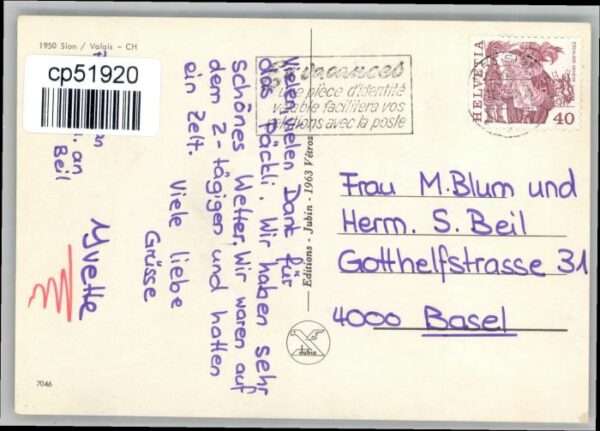 1950 Sion / Valais – CH
cp51920
vacances
une pièce d'identité
valable facilitera vos
relations avec la poste
HELVETIA
40
Vielen vielen Dank für
das Päckli. Wir haben sehr
schönes Wetter. Wir waren auf
dem 2-tägigen und hatten
ein Zelt.
Viele liebe
Grüsse
Yvette
an
Beil
Editions - Jubin - 1963 Vétroz
Frau M. Blum und
Herm. S. Beil
Gotthelfstrasse 31
4000 Basel
Jubin
7046